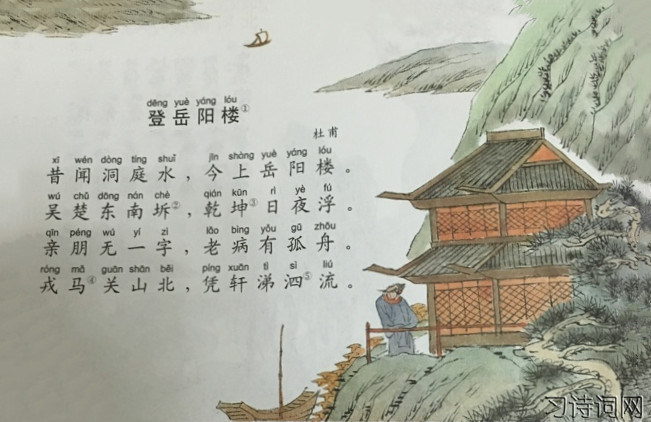 dēng yuè yáng lóu
登岳阳楼①
杜甫
xī wén dòng tíng shuǐ jīn shàng yuè yáng lóu
昔闻洞庭水，今上岳阳楼。
wú chǔ dōng nán chè qián kūn rì yè fú
吴楚东南坼②，乾坤③日夜浮。
qīn péng wú yí zì lǎo bìng yǒu gū zhōu
亲朋无一字，老病有孤舟。
róng mǎ guān shān běi píng xuān tì sì liú
戎马④关山北，凭轩涕泗⑤流。
习诗词网